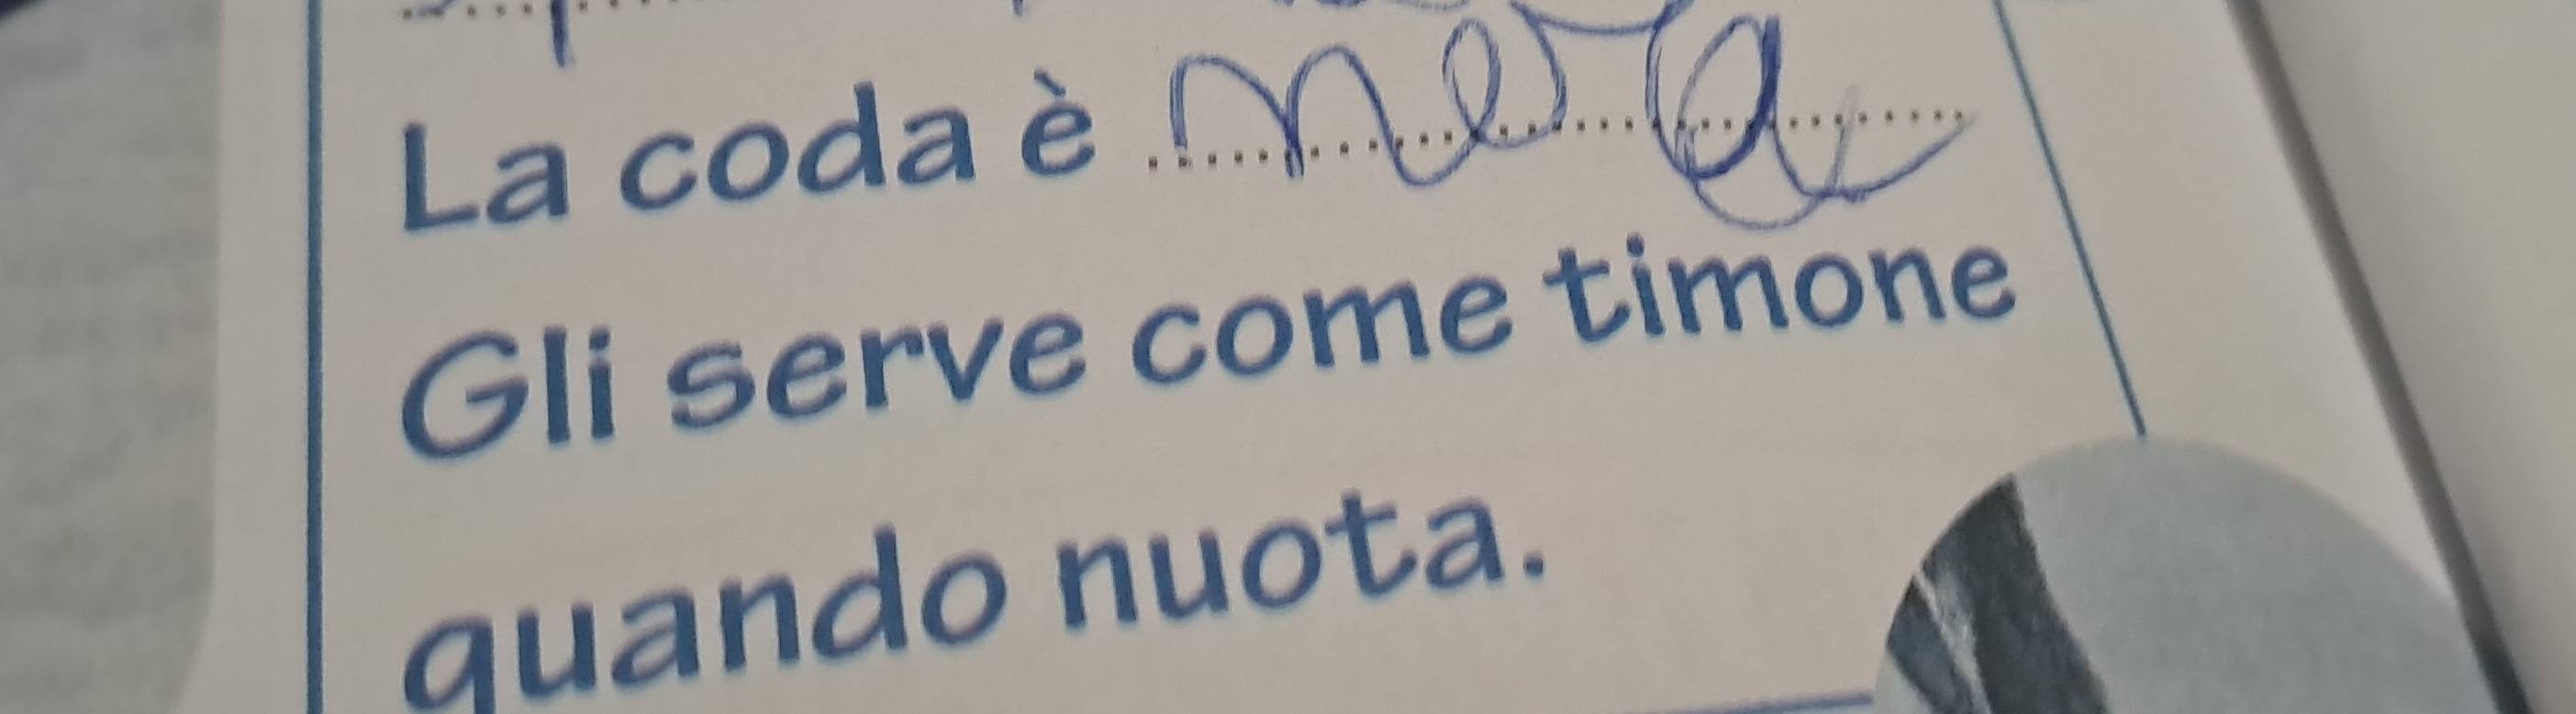 La coda è nera
Gli serve come timone
quando nuota.